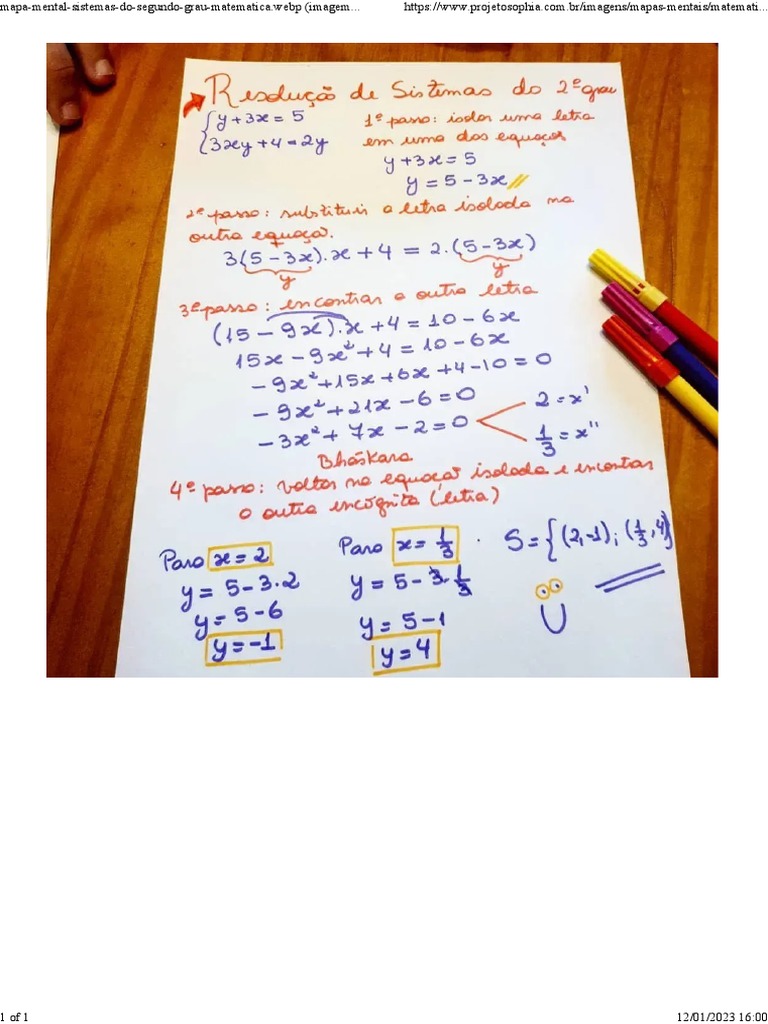 mapa-mental-sistemas-do-segundo-grau-matematica.webp (imagem...
https://www.projetosophia.com.br/imagens/mapas-mentais/matemati...
Resolução de Sistemas do 2º grau
{y + 3x = 5
{3xy + 4 = 2y
1º passo: isolar uma letra
em uma das equações
y + 3x = 5
y = 5 - 3x //
2º passo: substituir a letra isolada na
outra equação.
3(5 - 3x).x + 4 = 2.(5 - 3x)
y y
3º passo: encontrar a outra letra
(15 - 9x).x + 4 = 10 - 6x
15x - 9x² + 4 = 10 - 6x
- 9x² + 15x + 6x + 4 - 10 = 0
- 9x² + 21x - 6 = 0
- 3x² + 7x - 2 = 0
2 = x'
1/3 = x''
Bháskara
4º passo: voltar na equação isolada e encontrar
a outra incógnita (letra)
Para x = 2
y = 5 - 3.2
y = 5 - 6
y = -1
Para x = 1/3
y = 5 - 3.1/3
y = 5 - 1
y = 4
S = {(2,-1);(1/3,4)}
1 of 1
12/01/2023 16:00